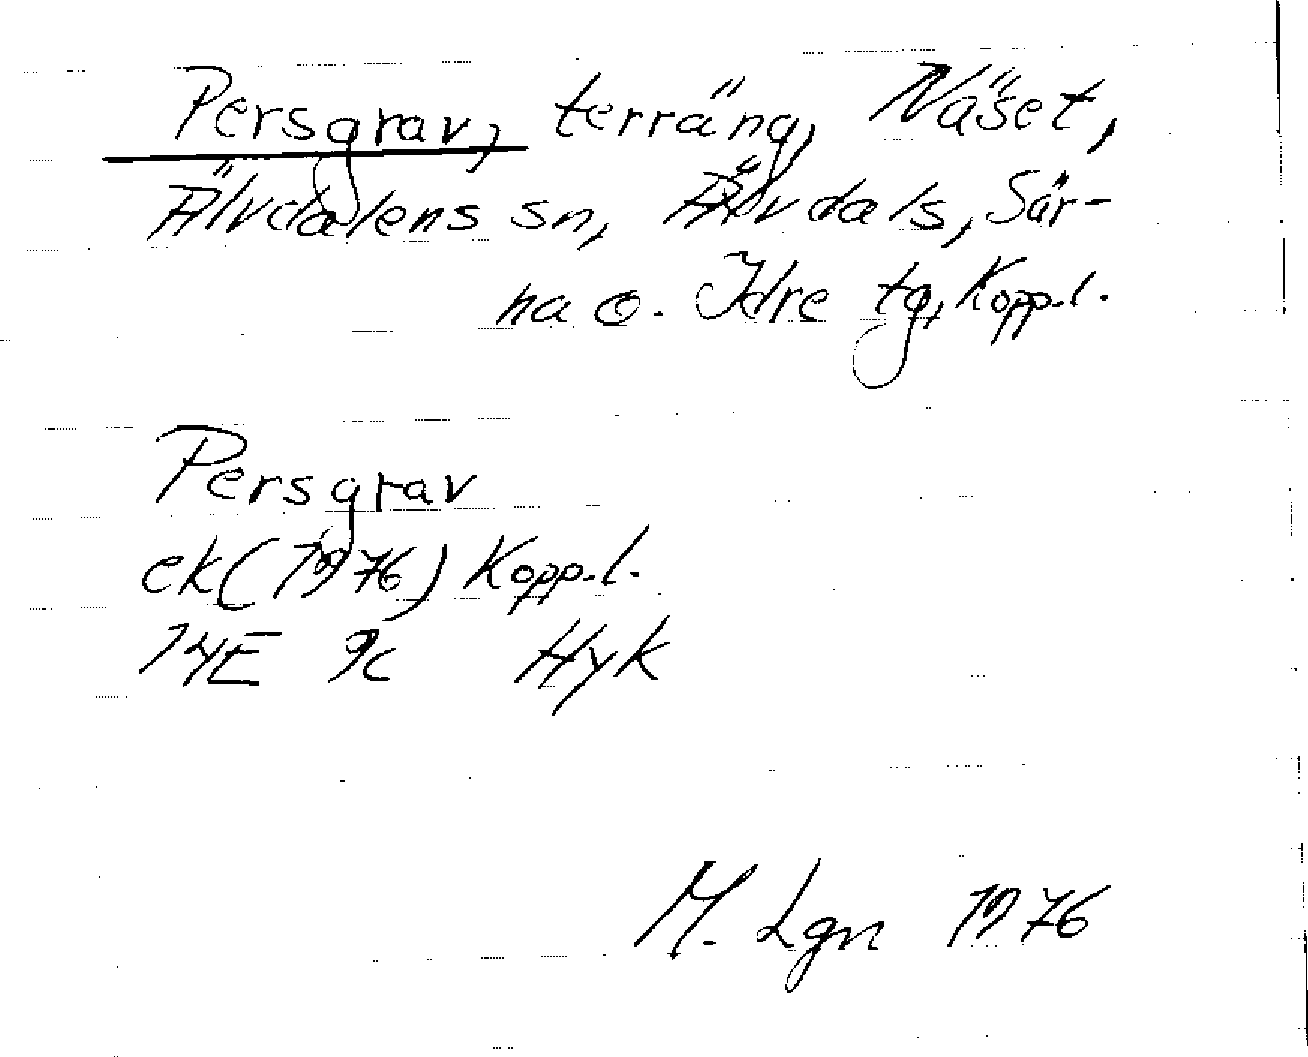 Persgrav, terräng, Näset,
Älvdalens sn, Älvdals, Sär-
na o. Idre tg, Kopp.l.
Persgrav
ek (1976) Kopp.l.
14E 9c Hyk
M. Lgn 1976